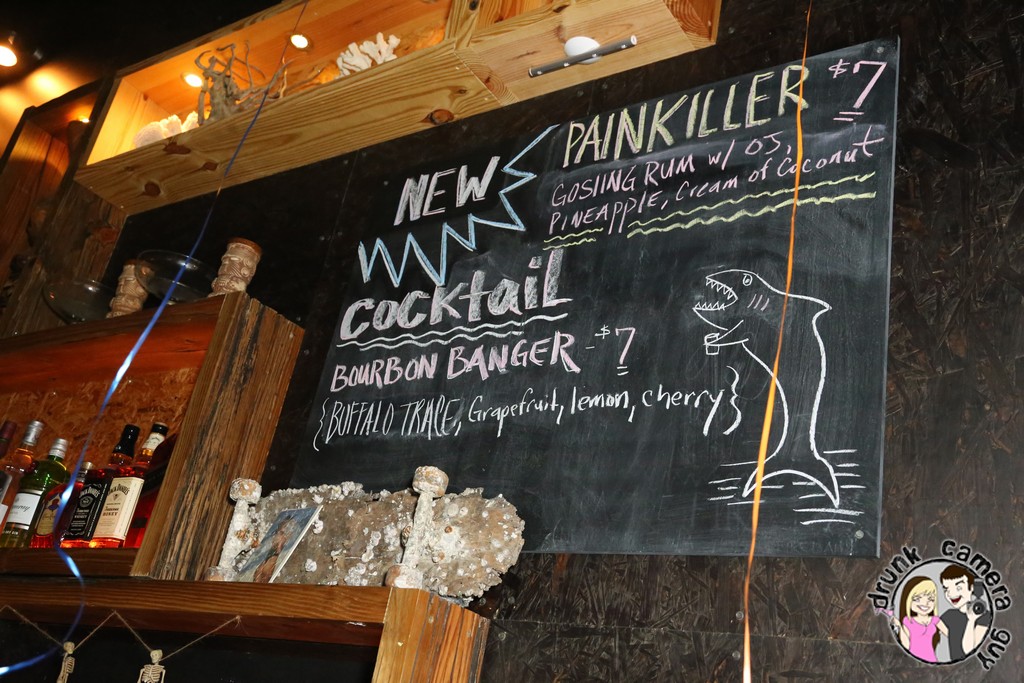 PAINKILLER $7
GOSLING RUM w/ OJ,
PINEAPPLE, Cream of Coconut
NEW
Cocktail
BOURBON BANGER - $7
{BUFFALO TRACE, Grapefruit, lemon, cherry}
JACK DANIEL'S
HONEY
drunk camera guy